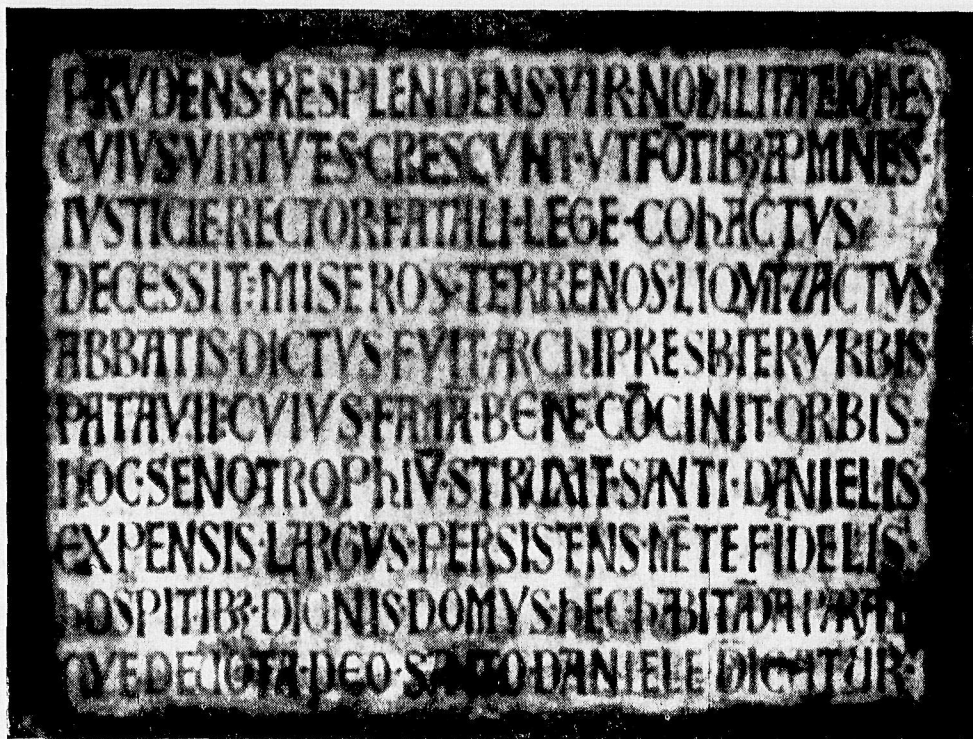 PRVDENS·RESPLENDENS·VIR·NOBILITATE IOhES
CVIVS·VIRTVTES·CRESCVNT·VT FŌTIB3 AMNES·
IVSTICIE RECTOR FATALI·LEGE·COhACTVS
DECESSIT·MISEROS·TERRENOS·LIQVIT·7ACTVS
ABBATIS·DICTVS FVIT·ARChIPRESBITER VRBIS
PATAVII·CVIVS·FAMA·BENE CŌCINIT·ORBIS·
hOC·SENOTROPhIV̄·STRVXIT·SANTI·DANIELIS
EXPENSIS·LARGVS·PERSISTENS MĒTE FIDELIS·
hOSPITIB3·DIONIS DOMVS·hEC hABITĀDA PARAT
DEO· DANIELE DICATUR·